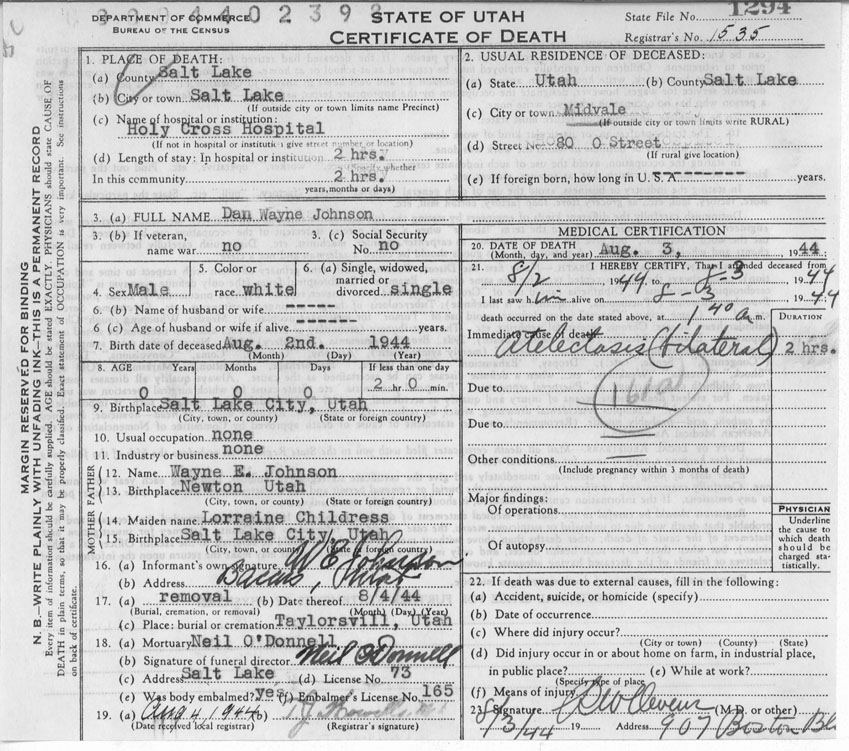 DEPARTMENT OF COMMERCE 4402398 STATE OF UTAH State File No. 1294
BUREAU OF THE CENSUS CERTIFICATE OF DEATH Registrar's No. 1535
MARGIN RESERVED FOR BINDING
N. B.—WRITE PLAINLY WITH UNFADING INK—THIS IS A PERMANENT RECORD
Every item of information should be carefully supplied. AGE should be stated EXACTLY. PHYSICIANS should state CAUSE OF
DEATH in plain terms, so that it may be properly classified. Exact statement of OCCUPATION is very important. See instructions
on back of certificate.
1. PLACE OF DEATH:
(a) County Salt Lake
(b) City or town Salt Lake
(If outside city or town limits name Precinct)
(c) Name of hospital or institution:
Holy Cross Hospital
(If not in hospital or institution give street number or location)
(d) Length of stay: In hospital or institution 2 hrs.
(Specify whether
In this community 2 hrs.
years, months or days)
2. USUAL RESIDENCE OF DECEASED:
(a) State Utah (b) County Salt Lake
(c) City or town Midvale
(If outside city or town limits write RURAL)
(d) Street No. 80 O Street
(If rural give location)
(e) If foreign born, how long in U. S. years.
3. (a) FULL NAME Dan Wayne Johnson
3. (b) If veteran, name war no 3. (c) Social Security No. no
4. Sex Male 5. Color or race white 6. (a) Single, widowed, married or divorced single
6. (b) Name of husband or wife
6. (c) Age of husband or wife if alive years.
7. Birth date of deceased Aug. 2nd. 1944
(Month) (Day) (Year)
8. AGE Years Months Days If less than one day
0 0 0 2 hr 0 min.
9. Birthplace Salt Lake City, Utah
(City, town, or county) (State or foreign country)
10. Usual occupation none
11. Industry or business none
FATHER
12. Name Wayne E. Johnson
13. Birthplace Newton Utah
(City, town, or county) (State or foreign country)
MOTHER
14. Maiden name Lorraine Childress
15. Birthplace Salt Lake City Utah
(City, town, or county) (State or foreign country)
16. (a) Informant's own signature W E Johnson
(b) Address Bacchus, Utah
17. (a) removal (b) Date thereof 8/4/44
(Burial, cremation, or removal) (Month) (Day) (Year)
(c) Place: burial or cremation Taylorsvill, Utah
18. (a) Mortuary Neil O'Donnell
(b) Signature of funeral director Neil O'Donnell
(c) Address Salt Lake (d) License No. 73
(e) Was body embalmed? yes (f) Embalmer's License No. 165
19. (a) Aug 4 1944 (b)
(Date received local registrar) (Registrar's signature)
MEDICAL CERTIFICATION
20. DATE OF DEATH
(Month, day, and year) Aug. 3, 1944
21. I HEREBY CERTIFY, That I attended deceased from
8/2 1944, to 8-3 1944
I last saw him alive on 8-3 1944
death occurred on the date stated above, at 1 40 a m. DURATION
Immediate cause of death
Atelectasis (bilateral) 2 hrs.
Due to
161a
Due to
Other conditions
(Include pregnancy within 3 months of death)
Major findings:
Of operations
Of autopsy
PHYSICIAN
Underline
the cause to
which death
should be
charged sta-
tistically.
22. If death was due to external causes, fill in the following:
(a) Accident, suicide, or homicide (specify)
(b) Date of occurrence
(c) Where did injury occur?
(City or town) (County) (State)
(d) Did injury occur in or about home on farm, in industrial place,
in public place? (e) While at work?
(Specify type of place)
(f) Means of injury
23. Signature (M.D. or other)
8/3/44 19 Address 907 Boston Bl